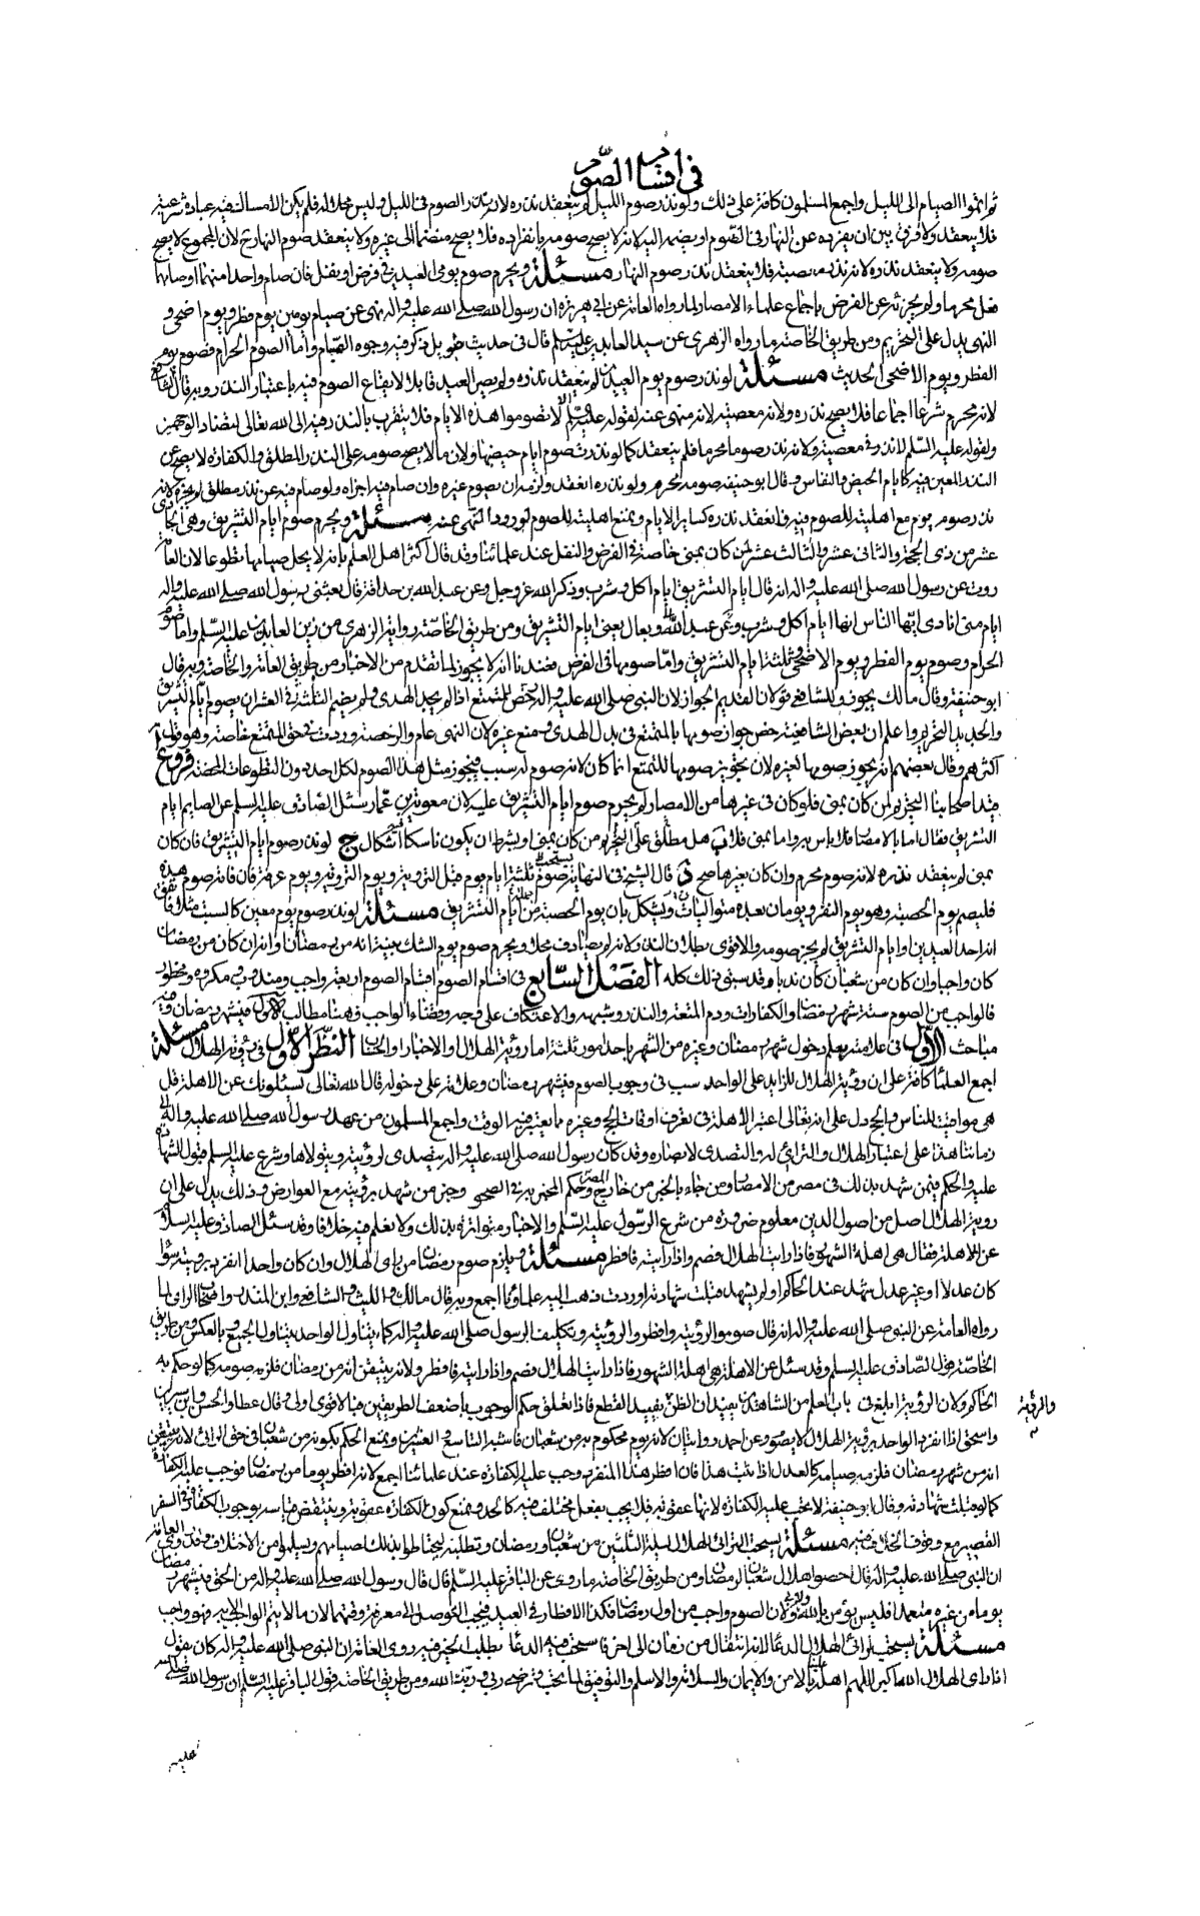 في اقسام الصوم
ثم اتموا الصيام الى الليل واجمع المسلمون كافة على ذلك ولو نذر صوم الليل لم ينعقد نذره لانه نذر الصوم في الليل وليس محلا له فلم يكن الامساك فيه عبادة شرعية
فلا ينعقد ولا فرق بين ان يفرده عن النهار في الصوم او يضمه اليه لانه لا يصح صومه بانفراده فلا يصح منضما الى غيره ولا ينعقد صوم النهار ح لان المجموع لا يصح
صومه ولا ينعقد نذره لانه نذر معصية فلا ينعقد نذر صوم النهار مسئلة ويحرم صوم يومى العيدين في فرض او نفل فان صام واحدا منهما او صامهما
فعل محرما ولم يجزئه عن الفرض باجماع علماء الامصار لما رواه العامة عن ابي هريرة ان رسول الله صلى الله عليه وآله نهى عن صيام يومين يوم فطر ويوم اضحى و
النهي يدل على التحريم ومن طريق الخاصة ما رواه الزهري عن سيد العابدين عليه السلم قال في حديث طويل ذكر فيه وجوه الصيام واما الصوم الحرام فصوم يوم
الفطر ويوم الاضحى الحديث مسئلة لو نذر صوم يوم العيدين لم ينعقد نذره ولم يصر العيد قابلا لايقاع الصوم فيه باعتبار النذر وبه قال الشافعي
لانه محرم شرعا اجماعا فلا يصح نذره ولانه معصية لانه منهى عنه لقوله عليه السلم الا لا تصوموا هذه الايام فلا يتقرب بالنذر فيه الى الله تعالى لتضاد الوجهين
ولقوله عليه السلم لا نذر في معصية ولانه نذر صوما محرما فلم ينعقد كما لو نذرت صوم ايام حيضها ولان ما لا يصح صومه على النذر المطلق والكفارة لا يصح عن
النذر المعين فيه كايام الحيض والنفاس وقال ابو حنيفة صومه محرم ولو نذره انعقد ولزمه ان يصوم غيره وان صام فيه اجزاه ولو صام فيه عن نذر مطلق لم يجزه لانه
نذر صوم يوم مع اهليته للصوم فيه فانعقد نذره كسائر الايام ويمنع اهليته للصوم لورود النهي عنه مسئلة ويحرم صوم ايام التشريق وهي الحادي
عشر من ذى الحجة والثاني عشر والثالث عشر لمن كان بمنى خاصة في الفرض والنفل عند علمائنا وقد قال اكثر اهل العلم بانه لا يحل صيامها تطوعا لان العامة
روت عن رسول الله صلى الله عليه وآله انه قال ايام التشريق ايام اكل وشرب وذكر الله عز وجل وعن عبد الله بن حذافة قال بعثني رسول الله صلى الله عليه وآله
ايام منى انادي ايها الناس انها ايام اكل وشرب وبعال يعنى ايام التشريق ومن طريق الخاصة رواية الزهري عن زين العابدين عليه السلم واما صوم
الحرام وصوم يوم الفطر ويوم الاضحى وثلثة ايام التشريق واما صومها في الفرض فعندنا انه لا يجوز لما تقدم من الاخبار من طريق العامة والخاصة وبه قال
ابو حنيفة وقال مالك يجوز وللشافعي قولان القديم الجواز لان النبي صلى الله عليه وآله رخص للمتمتع اذا لم يجد الهدى ولم يصم الثلثة في العشر ان يصوم ايام التشريق
والجديد التحريم واعلم ان بعض الشافعية خص جواز صومها بالمتمتع في بدل الهدى ومنع غيره لان النهى عام والرخصة وردت في حق المتمتع خاصة وهو قول
اكثرهم وقال بعضهم انه يجوز صومها لغيره لان تجويز صومها للمتمتع انما كان لانه صوم له سبب فيجوز مثل هذا الصوم لكل احد دون التطوعات المحضة فروع ا
قيد اصحابنا التحريم لمن كان بمنى فلو كان في غيرها من الامصار لم يحرم صوم ايام التشريق عليه لان معوية بن عمار سئل الصادق عليه السلم عن الصايم ايام
التشريق فقال اما بالامصار فلا باس به واما بمنى فلا ب هل مطلق على التحريم من كان بمنى او يشترط ان يكون ناسكا اشكال ج لو نذر صوم ايام التشريق فان كان
بمنى لم ينعقد نذره لانه صوم محرم وان كان بغيرها صح د قال الشيخ في النهاية يستحب صوم ثلثة ايام يوم قبل التروية ويوم التروية ويوم عرفة فان فاته صوم هذه
فليصم يوم الحصبة وهو يوم النفر ويومان بعده متواليات ويشكل بان يوم الحصبة من جملة ايام التشريق مسئلة لو نذر صوم يوم معين كالسبت مثلا فاتفق
انه احد العيدين او ايام التشريق لم يجز صومه والاقوى بطلان النذر لانه لم يصادف محلا ويحرم صوم يوم الشك بنية انه من رمضان وانه ان كان من رمضان
كان واجبا وان كان من شعبان كان ندبا وقد سبق ذلك كله الفصل السابع في اقسام الصوم اقسام الصوم اربعة واجب ومندوب ومكروه ومحظور
فالواجب من الصوم ستة شهر رمضان والكفارات ودم المتعة والنذر وشبهه والاعتكاف على وجه وقضاء الواجب فهنا مطالب الاول في شهر رمضان وفيه
مباحث الاول في علامته يعلم دخول شهر رمضان وغيره من الشهر باحد امور ثلثة اما رؤية الهلال او الاخبار او الحساب النظر الاول في رؤية الهلال مسئلة
اجمع العلماء كافة على ان رؤية الهلال للزايد على الواحد سبب في وجوب الصوم في شهر رمضان وعلامة على دخوله قال الله تعالى يسئلونك عن الاهلة قل
هي مواقيت للناس والحج دل على انه تعالى اعتبر الاهلة في تعرف اوقات الحج وغيره ما يعتبر فيه الوقت واجمع المسلمون من عهد رسول الله صلى الله عليه وآله الى
زماننا هذا على اعتبار الهلال والترائي له والتصدى لابصاره وقد كان رسول الله صلى الله عليه وآله يتصدى لرؤيته ويتولاها وشرع عليه السلم قبول الشهادة
عليه والحكم فيمن شهد بذلك في مصر من الامصار ومن جاء بالخبر من خارج المصر وحكم المخبر به في الصحو وخبر من شهد برؤيته مع العوارض وذلك يدل على ان
روية الهلال اصل من اصول الدين معلوم ضرورة من شرع الرسول عليه السلم والاخبار متواترة بذلك ولا نعلم فيه خلافا وقد سئل الصادق عليه السلام
عن الاهلة فقال هي اهلة الشهور فاذا رايت الهلال فصم واذا رايته فافطر مسئلة ويلزم صوم رمضان من راى الهلال وان كان واحدا انفرد برويته سواء
كان عدلا او غير عدل شهد عند الحاكم او لم يشهد قبلت شهادته او ردت ذهب اليه علماؤنا اجمع وبه قال مالك والليث والشافعي وابن المنذر واصحاب الراى لما
رواه العامة عن النبي صلى الله عليه وآله انه قال صوموا لرؤيته وافطروا لرؤيته وتكليف الرسول صلى الله عليه وآله كما يتناول الواحد يتناول الجميع وبالعكس ومن طريق
الخاصة قول الصادق عليه السلم وقد سئل عن الاهلة هي اهلة الشهور فاذا رايت الهلال فصم واذا رايته فافطر ولانه يتيقن انه من رمضان فلزمه صومه كما لو حكم به
الحاكم ولان الرؤية ابلغ في باب العلم من الشاهدين يفيدان الظن يفيد القطع فاذا تعلق حكم الوجوب باضعف الطريقين فبالاقوى اولى وقال عطا والحسن وابن سيرين
والرؤية
واسحق اذا انفرد الواحد برؤية الهلال لا يصوم وعن احمد روايتان لانه يوم محكوم به من شعبان فاشبه التاسع والعشرين ويمنع الحكم بكونه من شعبان في حق الرائي لانه يتيقن
انه من شهر رمضان فلزمه صيامه كالعدل اذا ثبت هذا فان افطر هذا المنفرد وجب عليه الكفارة عند علمائنا اجمع لانه افطر يوما من رمضان فوجب عليه الكفارة
كما لو قبلت شهادته وقال ابو حنيفة لا يجب عليه الكفارة لانها عقوبة فلا يجب بفعل مختلف فيه كالحد ويمنع كون الكفارة عقوبة وينتقض قياسه بوجوب الكفارة في السفر
القصير مع وقوع الخلاف فيه مسئلة يستحب الترائي للهلال ليلة الثلثين من شعبان ورمضان وتطلبه ليحتاطوا بذلك لصيامهم ويسلموا من الاختلاف وقد روى العامة
ان النبي صلى الله عليه وآله قال احصوا هلال شعبان لرمضان ومن طريق الخاصة ما روى عن الباقر عليه السلم قال قال رسول الله صلى الله عليه وآله من الحق في شهر رمضان
يوما من غيره متعمدا فليس يؤمن بالله ولا بي ولان الصوم واجب من اول رمضان فكذا الافطار في العيد فيجب التوصل الى معرفة وقتهما لان ما لا يتم الواجب الا به فهو واجب
مسئلة يستحب لرائي الهلال الدعاء لانه انتقال من زمان الى اخر فاستحب فيه الدعاء بطلب الخير فيه روى العامة ان النبي صلى الله عليه وآله كان يقول
اذا راى الهلال الله اكبر اللهم اهله علينا بالامن والايمان والسلامة والاسلام والتوفيق لما تحب وترضى ربي وربك الله ومن طريق الخاصة قول الباقر عليه السلم ان رسول الله صلى الله
عليه